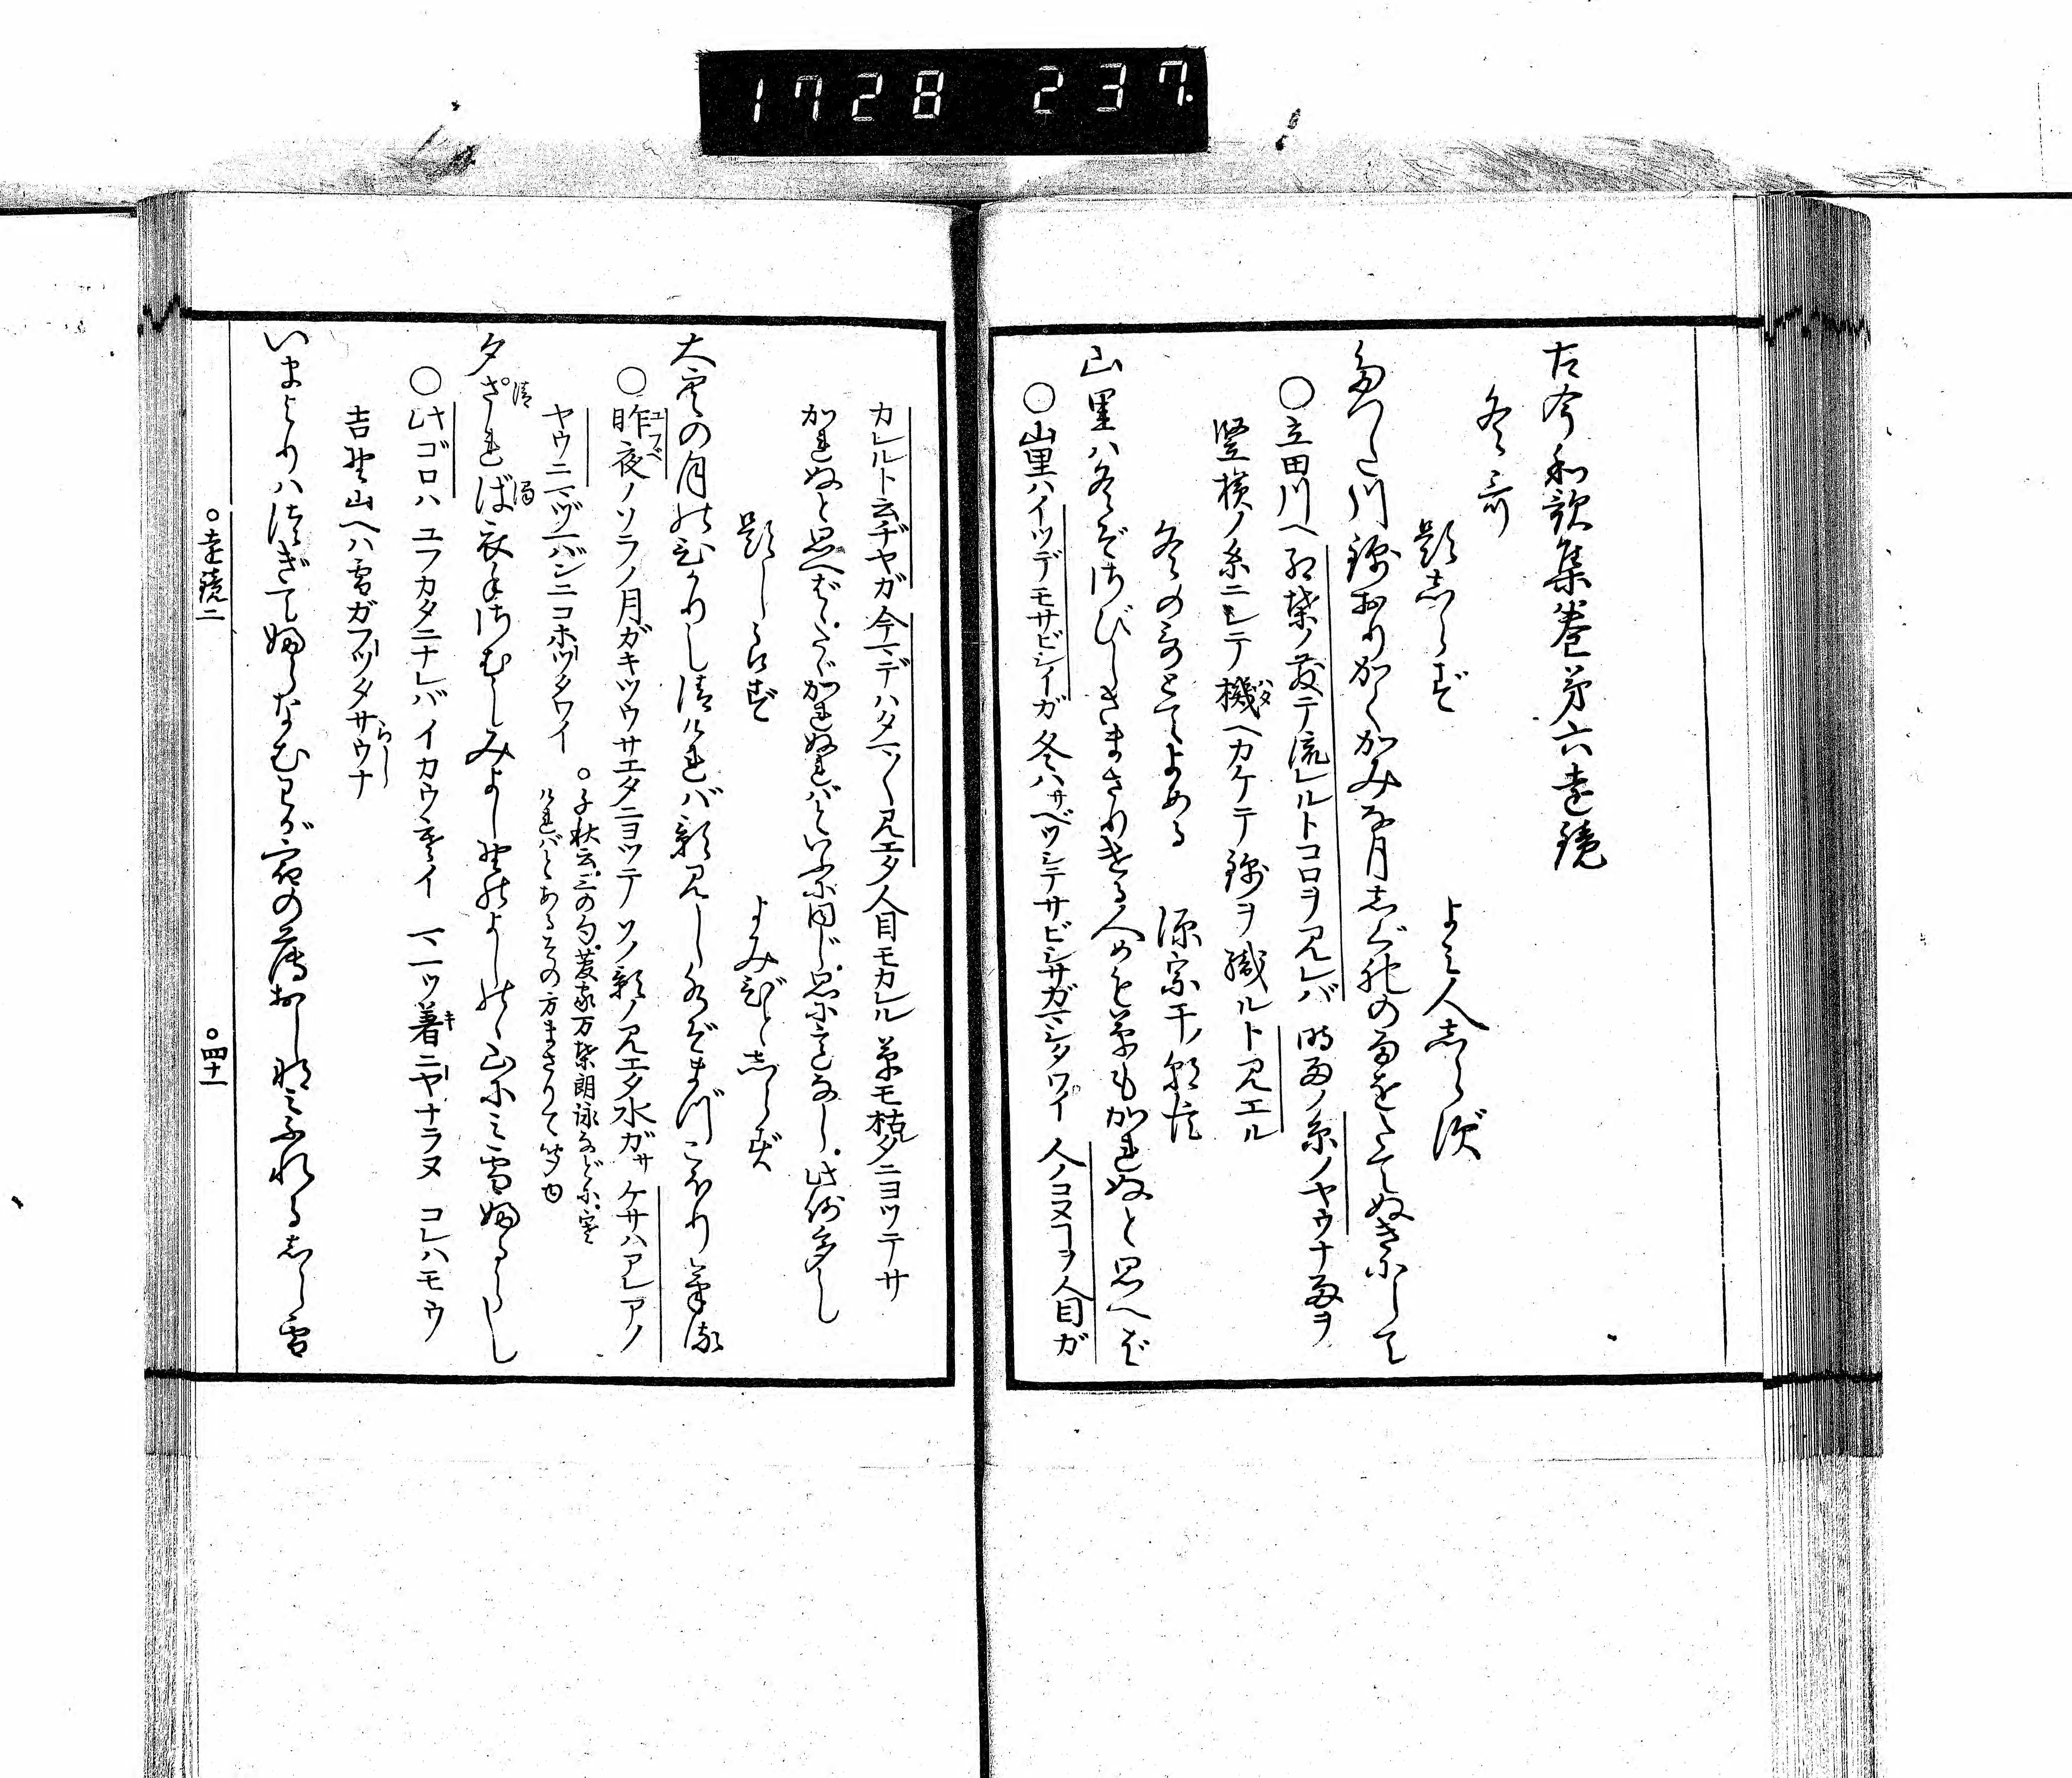 1728 237
古今和歌集巻第六遠鏡
冬哥
題しらず
よミ人しらず
たつた川錦おりかくかみな月しぐれの雨をたてぬきにして
○立田川ヘ紅葉ノ散テ流レルトコロヲ見レバ 時雨ノ糸ノヤウナ雨ヲ
竪横ノ糸ニシテ機ヘカケテ錦ヲ織ルト見エル
ハタ
冬の哥とてよめる
源宗于ノ朝臣
山里ハ冬ぞさびしさまさりける人めも草もかれぬと思へば
○山里ハイツデモサビシイガ 冬ハサベツシテサビシサガマシタワイ 人ノコヌヿヲ人目ガ
カレルト云ヂヤガ 今マデハタマ〳〵見エタ人目モカレル 草モ枯タニヨツテサ
かれぬと思へば、たゞかれぬればといふに同じ、思に意なし、此例多し
題しらず
よみびとしらず
大空の月のひかりし清ければ影見し水ぞまづこほりける
○昨夜ノソラノ月ガキツウサエタニヨツテ ソノ影ノ見エタ水ガサ ケサハアレアノ
ユフベ
ヤウニマヅ一バンニコホツタワイ
○千秋云、二の句、菅家万葉朗詠などに、寒
ければとあるその方まさりて聞ゆ
夕されば衣手さむしみよしのゝよしのゝ山にミ雪ふるらし
清
濁
○此ゴロハ ユフカタニナレバイカウ寒イ 一マイツツ着ニヤナラヌ コレハモウ
キ
吉野山ヘハ雪ガフツタサウナ
らし
いまよりハつぎてふらなむわが宿の薄おしなミふれるしら雪
○遠鏡二
○四十一